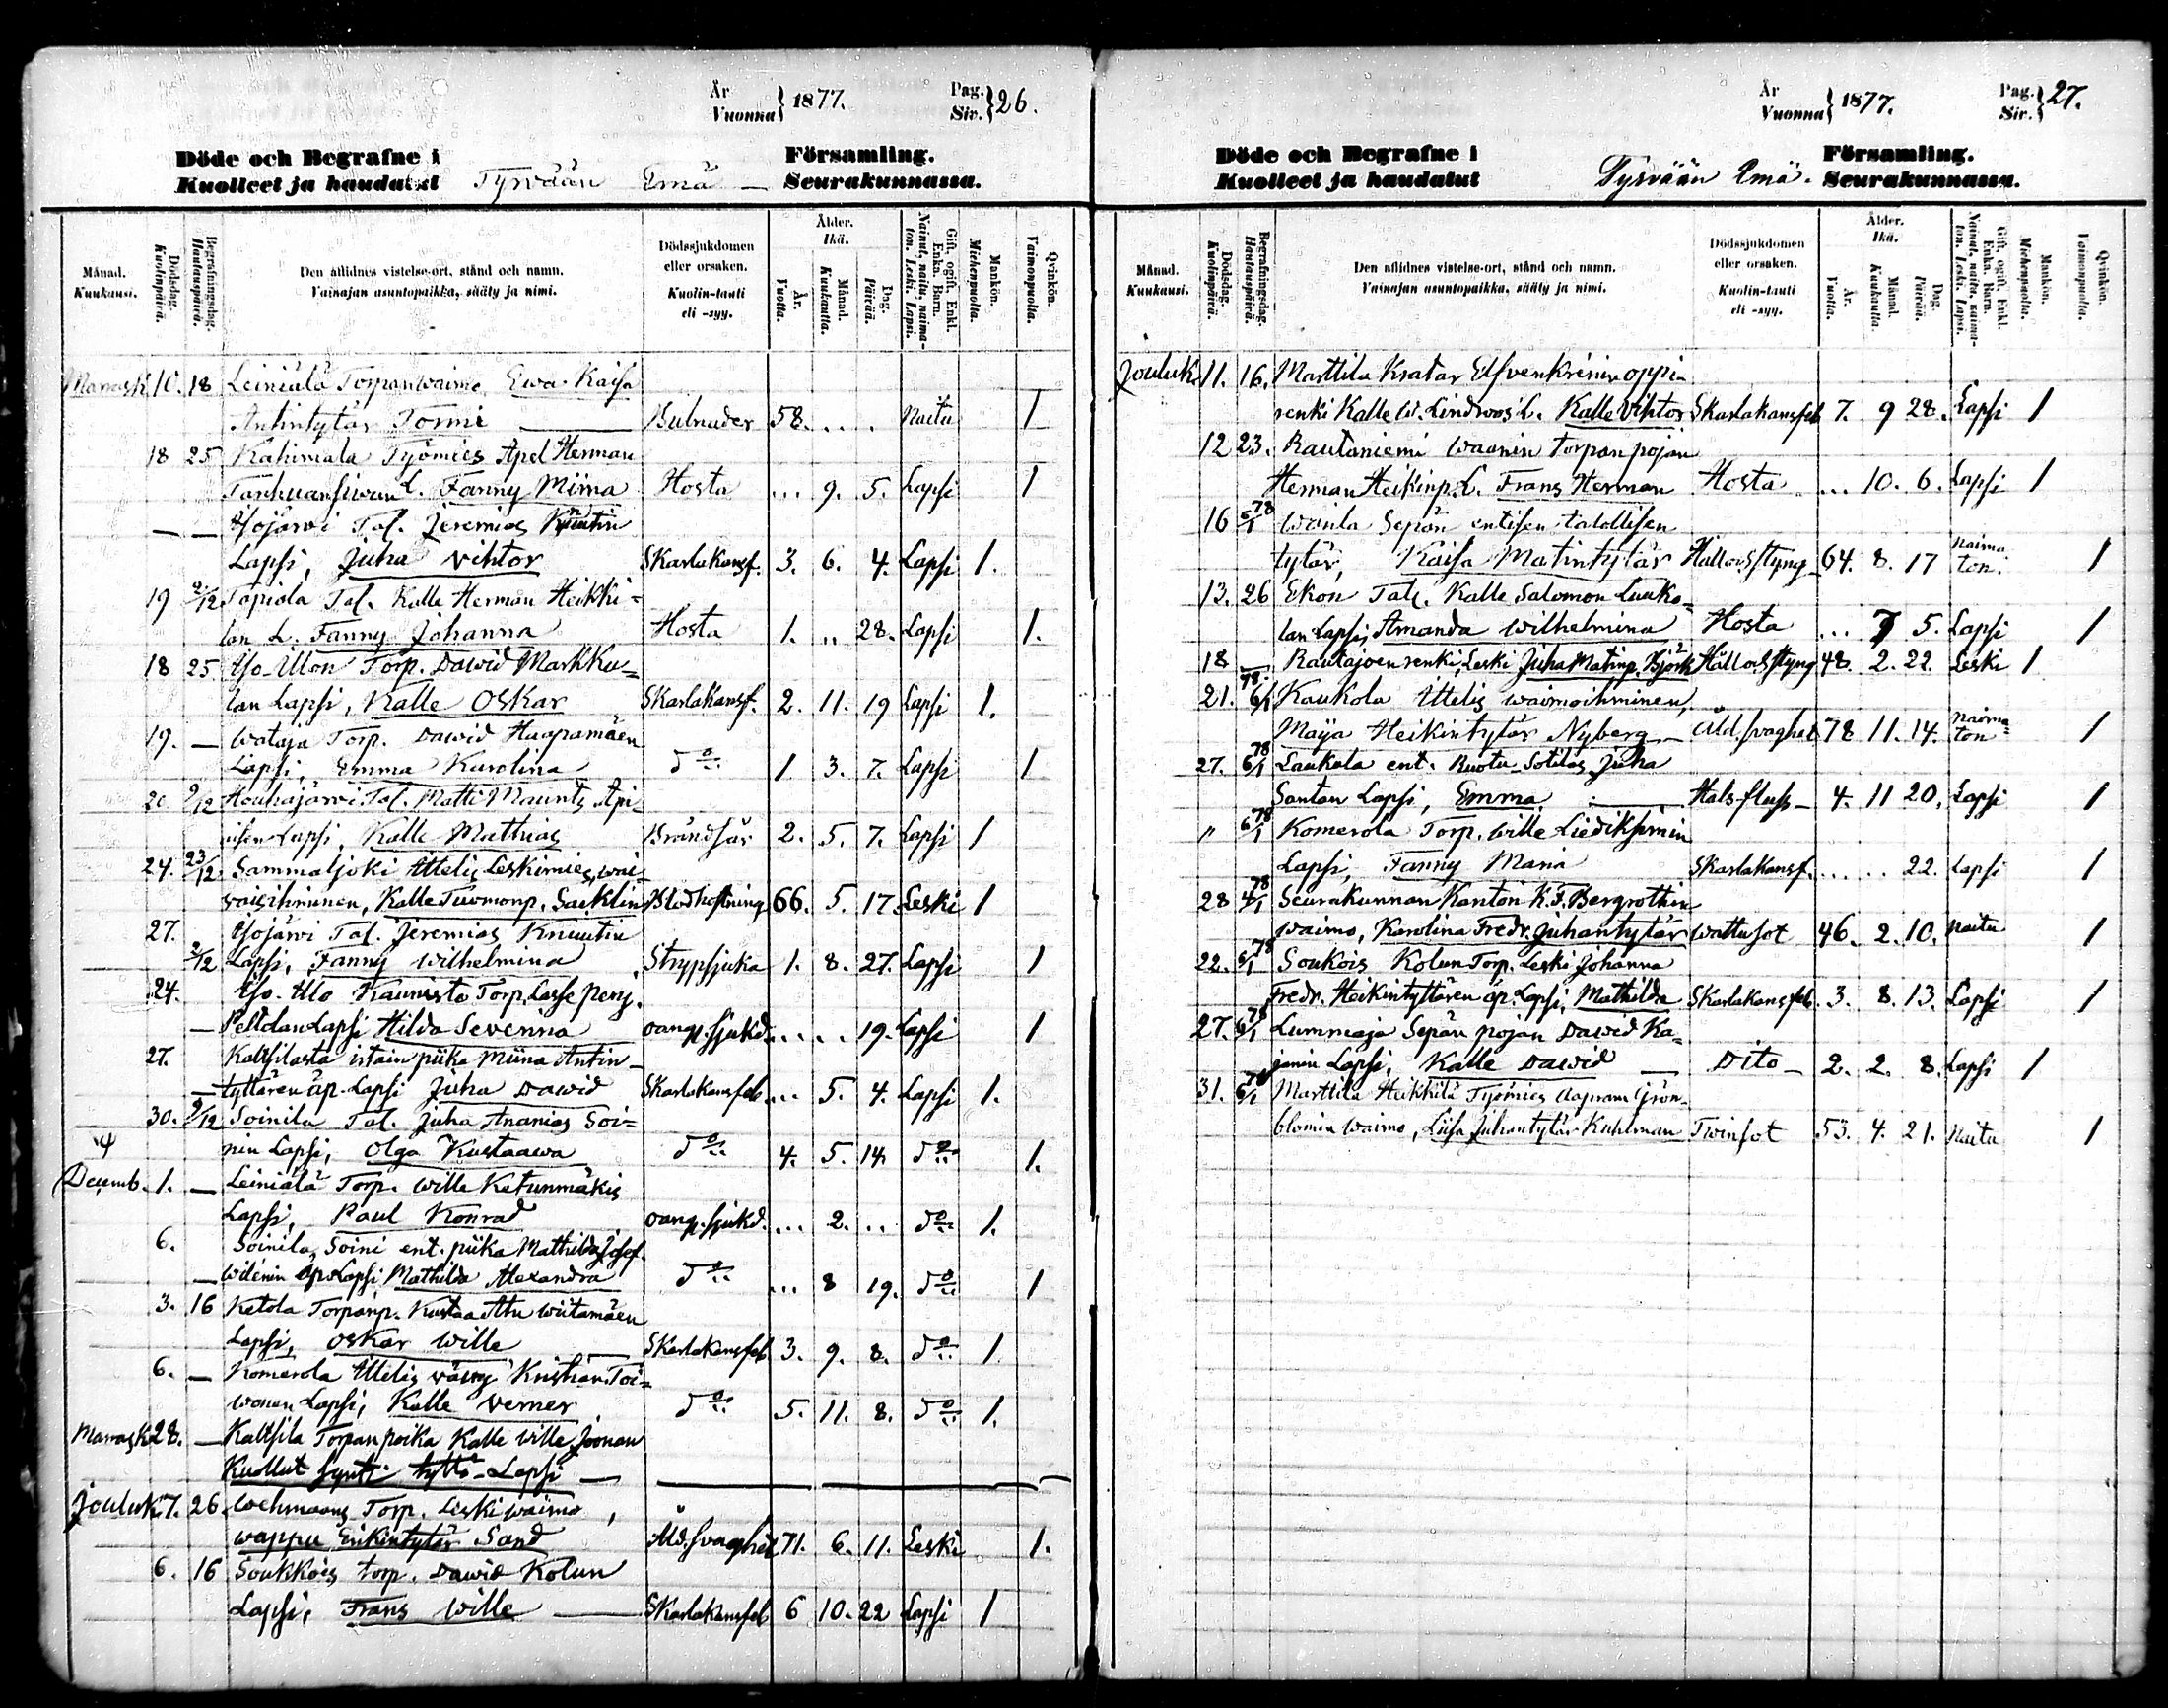 År
Vuonna } 1877.
Pag.
Siv. } 26.
Döde och Begrafne i Församling.
Kuolleet ja haudatut Tyrvään Emä — Seurakunnassa.
Månad.
Kuukausi.
Dödsdag.
Kuolinpäivä.
Begrafningsdag.
Hautauspäivä.
Den aflidnes vistelse-ort, stånd och namn.
Vainajan asuntopaikka, sääty ja nimi.
Dödssjukdomen
eller orsaken.
Kuolin-tauti
eli -syy.
Ålder.
Ikä.
År.
Vuotta.
Månad.
Kuukautta.
Dag.
Päivää.
Gift, ogift, Enkl.
Enka. Barn.
Nainut, naitu, naima-
ton. Leski. Lapsi.
Mankön.
Miehenpuolta.
Qvinkön.
Vaimonpuolta.
Marrask. 10. 18 Leiniälä Torpanwaimo Ewa Kaisa
Antintytär Tormi — 58. . . . Naitu 1
18 25 Kahimala Työmies Apel Herman
L. Fanny Miina Hosta ... 9. 5. Lapsi 1
— — Isojärwi Tal. Jeremias Knuutin
Lapsi, Juha Vihtor Skarlakansf. 3. 6. 4. Lapsi 1.
19 2/12 Tapiola Tal. Kalle Herman Heikki=
lan L. Fanny Johanna Hosta 1. .. 28. Lapsi 1.
18 25 Iso Ulon Torp. Dawid Markku=
lan Lapsi, Kalle Oskar Skarlakansf. 2. 11. 19 Lapsi 1.
19. — Wataja Torp. Dawid Haapamäen
Lapsi, Emma Karolina do 1 3. 7. Lapsi 1
20. 2/12 Houhajärwi Tal. Matti Maunts Api-
lisen Lapsi, Kalle Mathias Brändsår 2. 5. 7. Lapsi 1
24. 23/12 Sammaljoki Ittelis Leskimies, wai-
waisihminen, Kalle Tuomonp. Saeklin Blodhostning 66. 5. 17. Leski 1
27. Isojärwi Tal. Jeremias Knuutin
2/12 Lapsi, Fanny Wilhelmina Strypsjuka 1. 8. 27. Lapsi 1
24. Iso-Ulo Kaunisto Torp. Lasse Penj.
— Peltolan Lapsi Hilda Severina oangs.sjukd. ... . . 19. Lapsi 1
27. Kaltsilasta istain piika Miina Antin-
— tyttären äp. Lapsi Juha Dawid Skarlakansfeb. ... 5. 4. Lapsi 1.
30. 9/12 Soinila Tal. Juha Ananias Soi=
nin Lapsi, Olga Kustaawa do 4. 5. 14. do 1.
Decemb. 1. — Leiniälä Torp. Wille Ketunmäkis
Lapsi, Paul Konrad oang.sjukd. ... 2. .. do 1.
6. Soinila, Soini ent. piika Mathilda Josef.
— Wilenin äp. Lapsi Mathilda Alexandra do ... 8 19. do 1
3. 16 Ketola Torpanp. Kustaa Attu Wiitamäen
Lapsi, Oskar Wille Skarlakansfeb 3. 9. 8. do 1
6. — Komerola Ittelis Kristian Toi=
wonen Lapsi, Kalle Verner do 5. 11. 8. do 1.
Marrask. 28. — Kaltsila Torpanpoika Kalle Wille Joonan
Kuollut synt. tyttö-Lapsi —
Jouluk. 7. 26 Wehmaans Torp. Leskiwaimo,
Wappu Erikintytär Sand Åld.svaghet 71. 6. 11. Leski 1.
6. 16 Soukkois torp. Dawid Kolun
Lapsi, Frans Wille — Skarlakansfeb 6 10. 22 Lapsi 1
År
Vuonna } 1877.
Pag.
Siv. } 27.
Döde och Begrafne i Församling.
Kuolleet ja haudatut Tyrvään Emä. Seurakunnassa.
Månad.
Kuukausi.
Dödsdag.
Kuolinpäivä.
Begrafningsdag.
Hautauspäivä.
Den aflidnes vistelse-ort, stånd och namn.
Vainajan asuntopaikka, sääty ja nimi.
Dödssjukdomen
eller orsaken.
Kuolin-tauti
eli -syy.
Ålder.
Ikä.
År.
Vuotta.
Månad.
Kuukautta.
Dag.
Päivää.
Gift, ogift, Enkl.
Enka. Barn.
Nainut, naitu, naima-
ton. Leski. Lapsi.
Mankön.
Miehenpuolta.
Qvinkön.
Vaimonpuolta.
Jouluk. 11. 16. Marttila Kratar Elfvenkrénin oppi-
renki Kalle W. Lindroos L. Kalle Vihtor Skarlakansfeb 7. 9 28. Lapsi 1
12 23. Rautaniemi Waanin torpan pojan
Herman Heikinp. L. Frans Herman Hosta ... 10. 6. Lapsi 1
16 6/1 78 Wanla Sepän entisen talollisen
tytär, Kaisa Matintytär Håll och Styng 64. 8. 17 naima
ton. 1
13. 26 Ekon Tal. Kalle Salomon Luuko=
lan Lapsi, Amanda Wilhelmina Hosta ... 7 5. Lapsi 1
18 — Rautajoen renki, Leski Juha Matinp. Björk Håll och Styng 48. 2. 22. Leski 1
21. 6/1 78 Kaukola Ittelis waimoihminen,
Maija Heikintytär Nyberg — Åld.svaghet 78 11. 14. naima=
ton 1
27. 6/1 78 Laukola ent. Ruotu-Sotilas Juha
Santan Lapsi, Emma — Halsfluss — 4. 11 20. Lapsi 1
" 6/1 78 Komerola Torp. Wille Liediksimin
Lapsi, Fanny Maria Skarlakansf. . . . . 22. Lapsi 1
28 4/1 78 Seurakunnan Kanton K. F. Bergrothin
waimo, Karolina Fredr. Juhantytär Wattusot 46. 2. 10. naitu 1
22. 6/1 78 Soukois Kolun Torp. Leski Johanna
Fredr. Heikintyttären äp. Lapsi, Mathilda Skarlakansfeb. 3. 8. 13. Lapsi 1
27. 6/1 78 Lummaja Sepän pojan Dawid Ka=
janin Lapsi, Kalle Dawid — Dito — 2. 2. 8. Lapsi 1
31. 6/1 78 Marttila Heikkilä Työmies Aapram Grön-
blomin waimo, Liisa Juhantytär Kuhlman Twinsot 53. 4. 21. Naitu 1